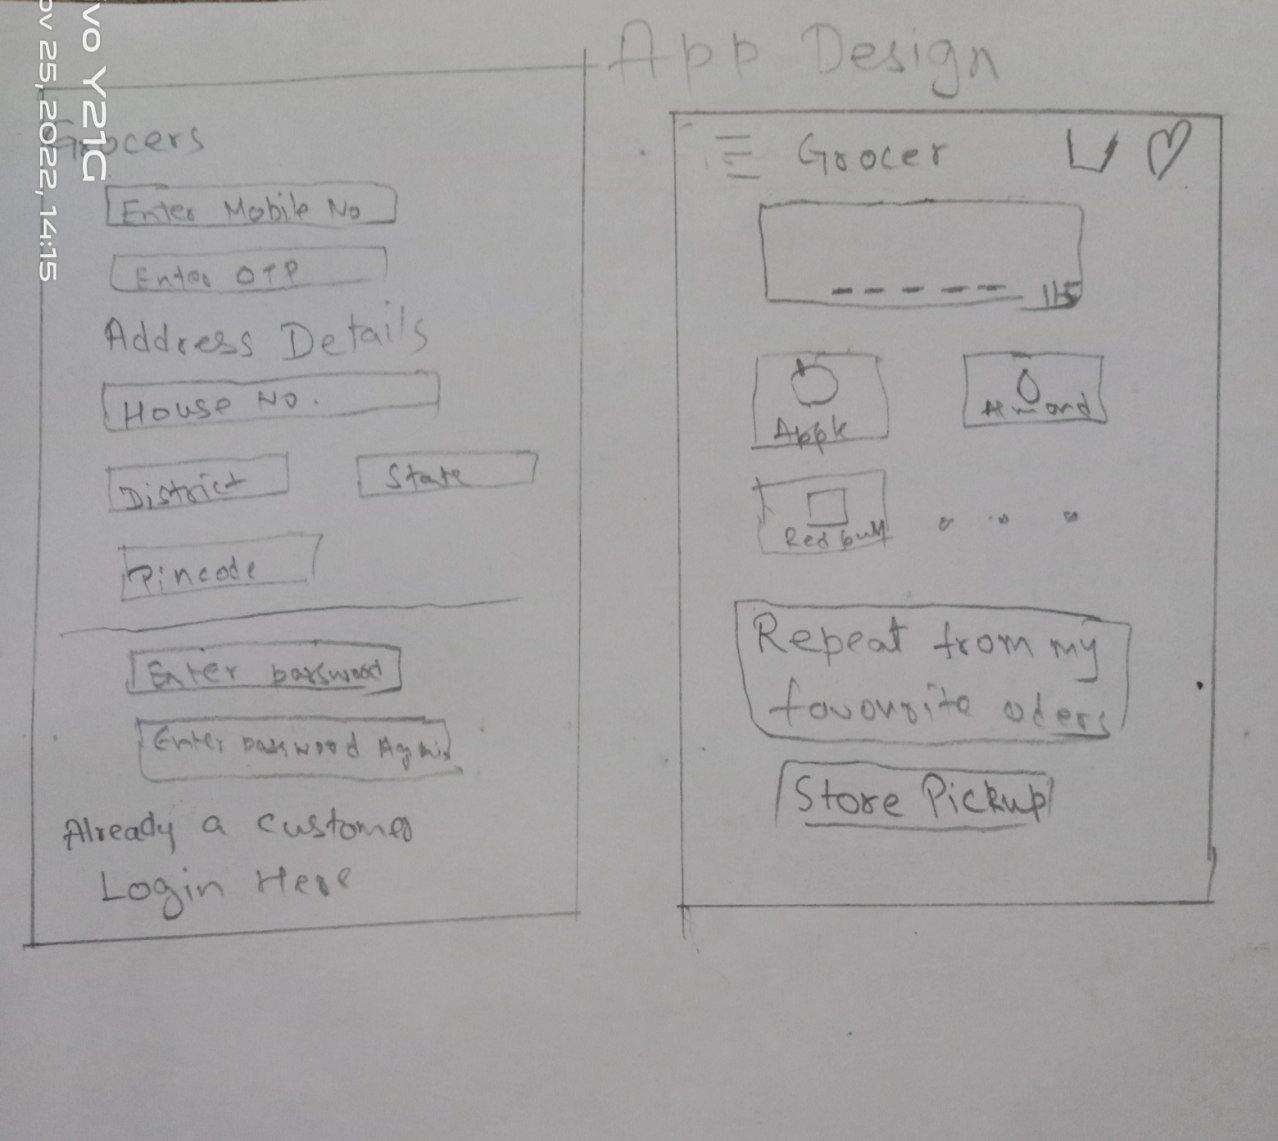 App Design
Grocers
Enter Mobile No
Enter OTP
Address Details
House No.
District
State
Pincode
Enter password
Enter password Again
Already a customer
Login Here
Grocer
1/5
Apple
Almond
Red bull
Repeat from my
favourite oders
Store Pickup
vo Y21G
ov 25, 2022, 14:15